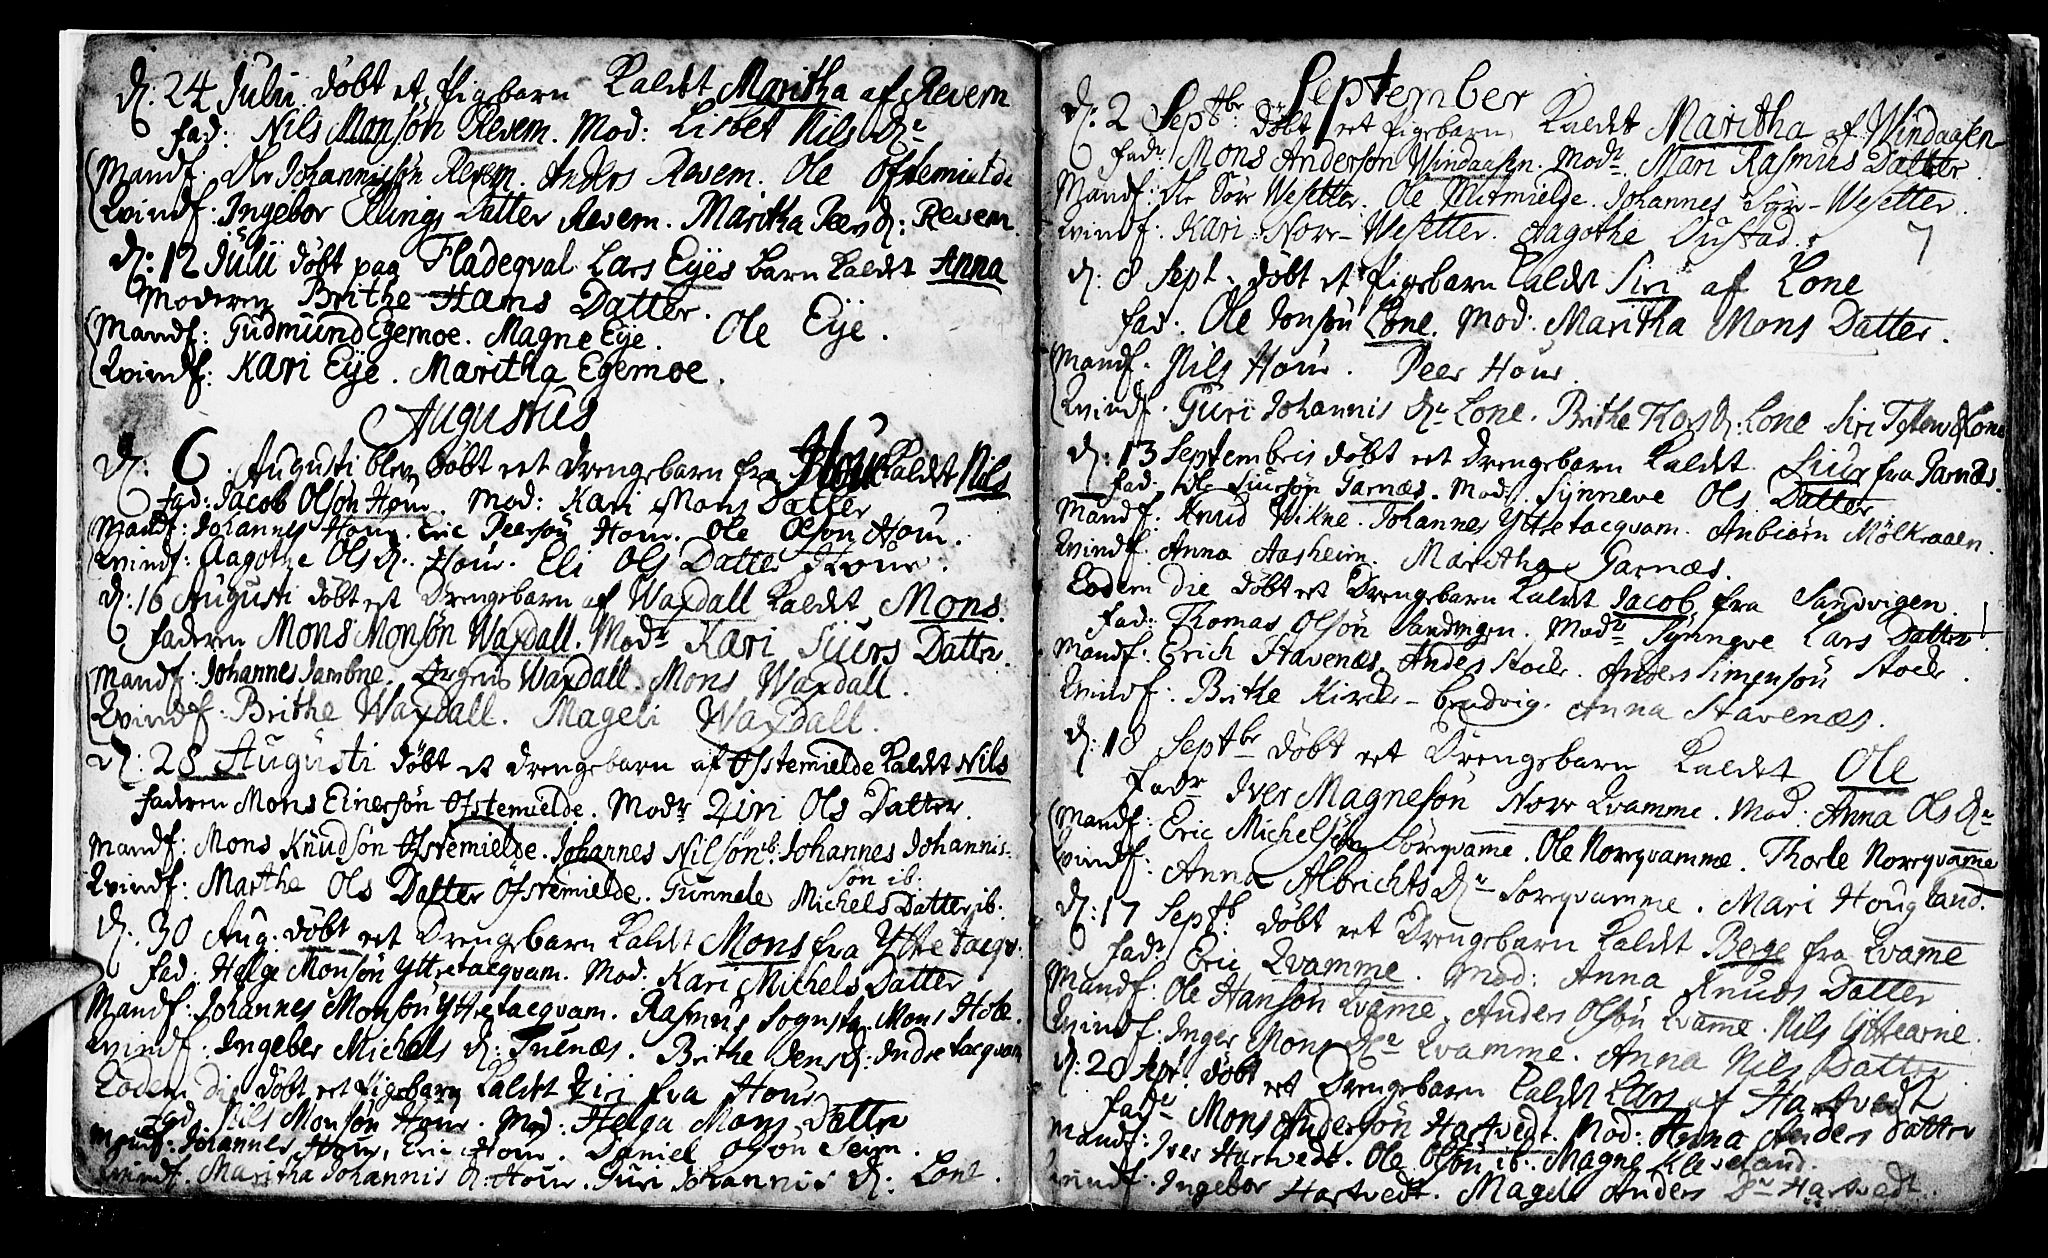 d: 24 Julii döbt et Pigebarn Kaldet Maritha af Revem
Fad: Nils Monsön Revem. Mod: Lisbet Nils Dr
Mandf: Ole Johannissön Revem. Anders Revem. Ole Ofstemielde
Qvindf: Ingebor Ellings Datter Revem. Maritha d: Revem.
d: 12 Julii döbt paa Fladeqval Lars Eyes barn kaldet Anna
Moderen Brithe Hans Datter.
Mandf: Gudmund Egemoe. Magne Eye. Ole Eye.
Qvindf: Kari Eye. Maritha Egemoe.
Augustus
d: 6. Augusti blev döbt eet drengebarn fra Hour kaldet Nils
Fad: Jacob Olsön Hour. Mod: Kari Mons Datter
Mandf: Johannes Hour. Eric Peersön Hour. Ole Olsön Hour.
Qvindf: Aagothe Ols d: Hour. Eli Ols Datter Hour.
d: 16 Augusti döbt eet Drengebarn af Waxdall kaldet Mons.
Faderen Mons Monsön Waxdall. Modr Kari Siurs Datter.
Mandf: Johannes Jambne. Waxdall. Mons Waxdall.
Qvindf: Brithe Waxdall. Mageli Waxdall.
d: 28 Augusti döbt et drengebarn af Ofstemielde kaldet Nils
Faderen Mons Einersön Ofstemielde. Modr Ziri Ols Datter.
Mandf: Mons Knudsön Ofstemielde. Johannes Nilsön ib: Johannes Johannis-
sön ib:
Qvindf: Marthe Ols Datter Ofstemielde. Gunnele Michels Datter ib:
d: 30 Aug: döbt eet Drengebarn kaldet Mons fra Yttre tacqv:
Fad: Helge Monsön Yttretacqvam. Mod: Kari Michels Datter
Mandf: Johannes Monsön Yttretacqvam. Rasmus Mons Hole.
Qvindf: Ingeber Michels d: Tuenæs. Brithe Jens d: Indre tacqvam
Eodem die döbt eet Pigebarn kaldet Ziri fra Hour
Fad: Nils Monsön Hour. Mod: Helga Mons Datter
Mandf: Johannes Hour, Eric Hour. Daniel Olsön Seim.
Qvindf. Maritha Johannis d: Hour. Guri Johannis d: Lone.
September
d: 2 Septbr: döbt eet Pigebarn, kaldet Maritha af Windaasen
Fadr Mons Andersön Windaasen. Modr Mari Rasmus Datter
Mandf: Ole Sör Wesetter. Ole Mitmielde. Johannes Sör-Wesetter.
Qvindf. Kari Norr-Wesetter. Aagothe Unstad.
7
d: 8 Sept. döbt et Pigebarn kaldet Siri af Lone
Fad: Ole Jonsön Lone. Mod: Maritha Mons Datter.
Mandf. Nils Hour. Peer Hour.
Qvindf. Guri Johannis dr Lone. Brithe d: Lone. Siri d Lone
d: 13 Septembris döbt eet drengebarn kaldet Siur fra Garnæs.
Fad: Ole Siursön Garnæs. Mod: Synneve Ols Datter
Mandf. Knud Wikne. Johannes Yttretacqvam. Anbiörn Mölkraaen.
Qvindf. Anna Aasheim. Maritha Garnæs.
Eodem die döbt eet Drengebarn kaldet Jacob, fra Sandvigen.
Fad: Thomas Olsön Sandvigen. Modr Synneve Lars Datter
Mandf. Erich Stavenæs. Anders Stoele. Anders Simensön Stoele.
Qvindf: Brithe Kircke-Brudvig. Anna Stavenæs.
d: 18 Septbr döbt eet Drengebarn kaldet Ole
Fadr Iver Magnesön Norr Qvamme. Mod: Anna Ols dr
Mandf: Eric Michelsön Sörqvame. Ole Noreqvamme. Thorle Noreqvame
Qvindf: Anna Albrichts dr Sorqvamme. Mari Hougland.
d: 17 Septb döbt eet Drengebarn kaldet Berge fra Qvame
Fadr Eric Qvamme. Mod: Anna Knuds Datter
Mandf: Ole Hansön Qvame. Anders Olsön Qvame. Nils Yttearne.
Qvindf: Inger Mons dr Qvamme. Anna Nils Datter
d: 20 Sept: döbt eet Drengebarn kaldet Lars af Hartvedt
Fadr Mons Andersön Hartvedt. Mod: Anna Anders Datter
Mandf: Iver Hartvedt. Ole Olsön ib: Magne Kleveland.
Qvindf. Ingebor Hartvedt. Magele Anders Dr Hartvedt.